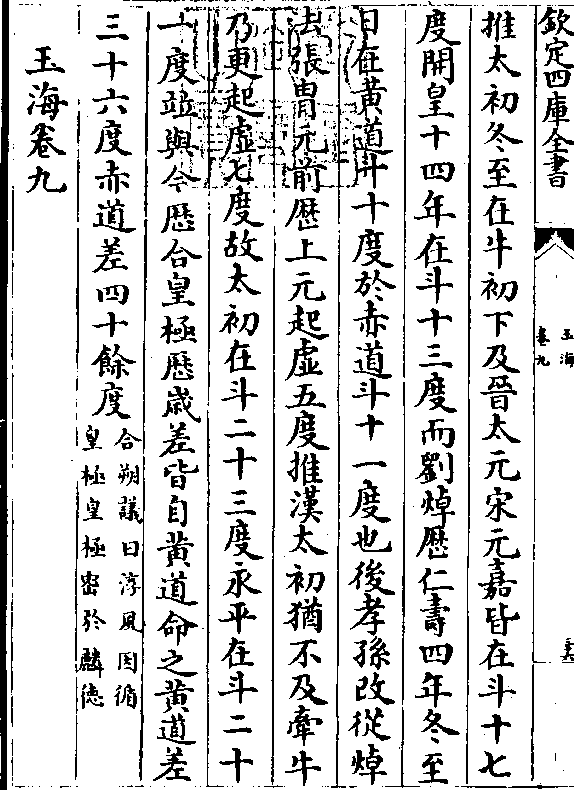 欽定四庫全書
玉海
卷九
推太初冬至在牛初下及晉太元宋元嘉皆在斗十七
度開皇十四年在斗十三度而劉焯歷仁壽四年冬至
日在黃道斗十度於赤道斗十一度也後孝孫改從焯
法張胄元前歷上元起虛五度推漢太初猶不及牽牛
乃更起虛七度故太初在斗二十三度永平在斗二十
一度竝與今歷合皇極歷歲差皆自黃道命之黃道差
三十六度赤道差四十餘度
合朔議曰淳風因循
皇極皇極密於麟德
玉海卷九